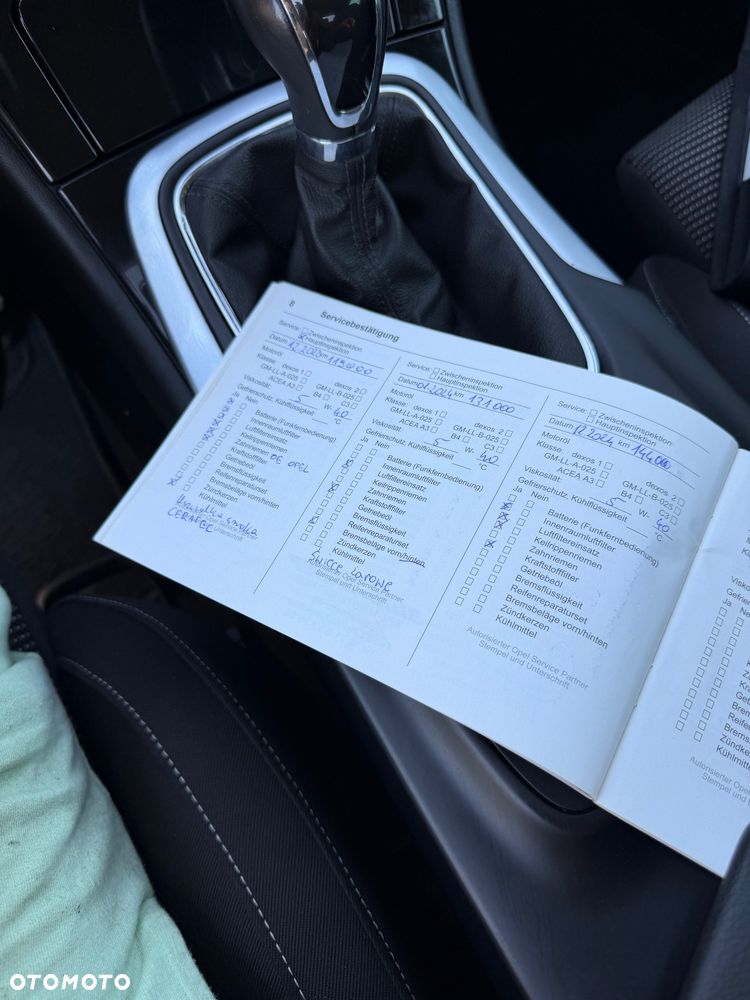 8 Servicebestätigung
Service: Zwischeninspektion
Hauptinspektion
Datum 12.2022 km 119000
Motoröl
Klasse: dexos 1 dexos 2
GM-LL-A-025 GM-LL-B-025
ACEA A3 B4 C3
Viskosität: 5 W- 40
Gefrierschutz, Kühlflüssigkeit °C
Ja Nein
Batterie (Funkfernbedienung)
Innenraumluftfilter
Luftfiltereinsatz
Keilrippenriemen
Zahnriemen OE OPEL
Kraftstofffilter
Getriebeöl
Bremsflüssigkeit
Reifenreparaturset
Bremsbeläge vorn/hinten
Zündkerzen
Kühlmittel
CERATEC
Service: Zwischeninspektion
Hauptinspektion
Datum 01.2024 km 131.000
Motoröl
Klasse: dexos 1 dexos 2
GM-LL-A-025 GM-LL-B-025
ACEA A3 B4 C3
Viskosität: 5 W- 40
Gefrierschutz, Kühlflüssigkeit °C
Ja Nein
Batterie (Funkfernbedienung)
Innenraumluftfilter
Luftfiltereinsatz
Keilrippenriemen
Zahnriemen
Kraftstofffilter
Getriebeöl
Bremsflüssigkeit
Reifenreparaturset
Bremsbeläge vorn/hinten
Zündkerzen
Kühlmittel
Świece żarowe
Autorisierter Opel Service Partner
Stempel und Unterschrift
Service: Zwischeninspektion
Hauptinspektion
Datum 12.2024 km 144000
Motoröl
Klasse: dexos 1 dexos 2
GM-LL-A-025 GM-LL-B-025
ACEA A3 B4 C3
Viskosität: 5 W- 40
Gefrierschutz, Kühlflüssigkeit °C
Ja Nein
Batterie (Funkfernbedienung)
Innenraumluftfilter
Luftfiltereinsatz
Keilrippenriemen
Zahnriemen
Kraftstofffilter
Getriebeöl
Bremsflüssigkeit
Reifenreparaturset
Bremsbeläge vorn/hinten
Zündkerzen
Kühlmittel
Autorisierter Opel Service Partner
Stempel und Unterschrift
Ja Nein
Zündkerzen
Kühlmittel
OTOMOTO